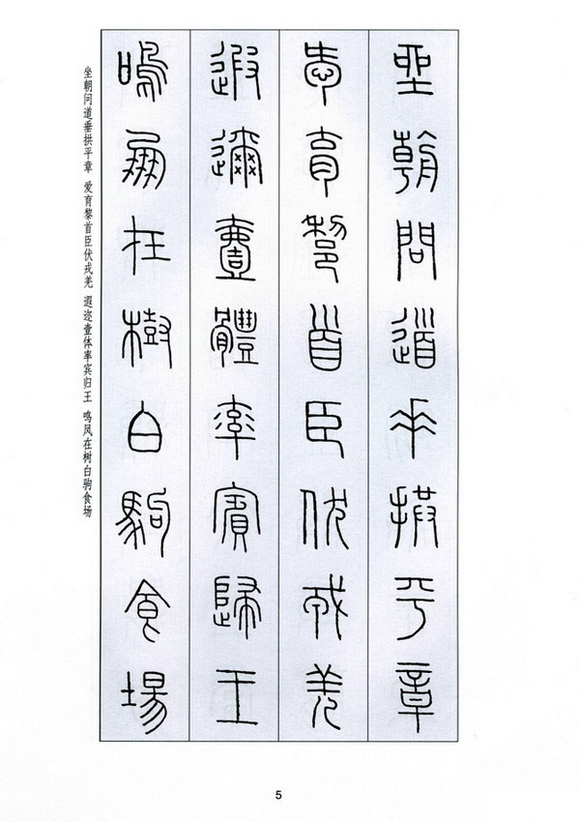 坐朝問道垂拱平章
愛育黎首臣伏戎羌
遐邇壹體率賓歸王
鳴鳳在樹白駒食場
坐朝问道垂拱平章 爱育黎首臣伏戎羌 遐迩壹体率宾归王 鸣凤在树白驹食场
5